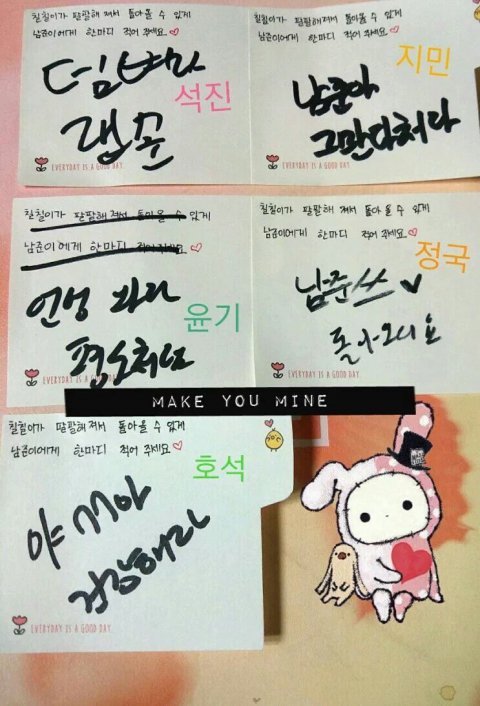 칠칠이가 팔팔해져서 돌아올 수 있게
남준이에게 한마디 적어 주세요. ♡
덤벼라
석진
랩몬
EVERYDAY IS A GOOD DAY.
칠칠이가 팔팔해져서 돌아올 수 있게
남준이에게 한마디 적어 주세요. ♡
지민
남준아
그만다쳐라
EVERYDAY IS A GOOD DAY.
칠칠이가 팔팔해져서 돌아올 수 있게
남준이에게 한마디 적어 주세요. ♡
윤기
평소처럼
EVERYDAY IS A GOOD DAY.
칠칠이가 팔팔해져서 돌아올 수 있게
남준이에게 한마디 적어 주세요. ♡
정국
남준쓰
EVERYDAY IS A GOOD DAY.
MAKE YOU MINE
칠칠이가 팔팔해져서 돌아올 수 있게
남준이에게 한마디 적어 주세요 ♡
호석
야
건강해라
EVERYDAY IS A GOOD DAY.